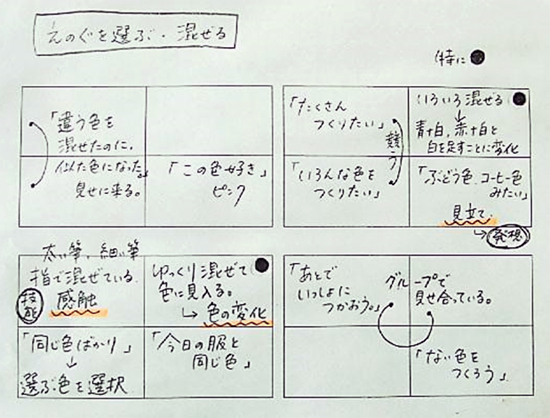 えのぐを選ぶ・混ぜる
特に●
「違う色を
混ぜたのに、
似た色になった。」
見せに来る。
「この色好き」
ピンク
「たくさん
つくりたい」
いろいろ混ぜる●
↓
青+白、赤+白と
白を足すことに変化
競う
「いろんな色を
つくりたい」
「ぶどう色、コーヒー色
みたい」
見立て
→発想
太い筆、細い筆
指で混ぜている
技能
感触
ゆっくり混ぜて●
色に見入る。
→色の変化
「同じ色ばかり」
↓
選ぶ色を選択
「今日の服と
同じ色」
「あとで
いっしょに
つかおう。」
グループで
見せ合っている。
「ない色を
つくろう」